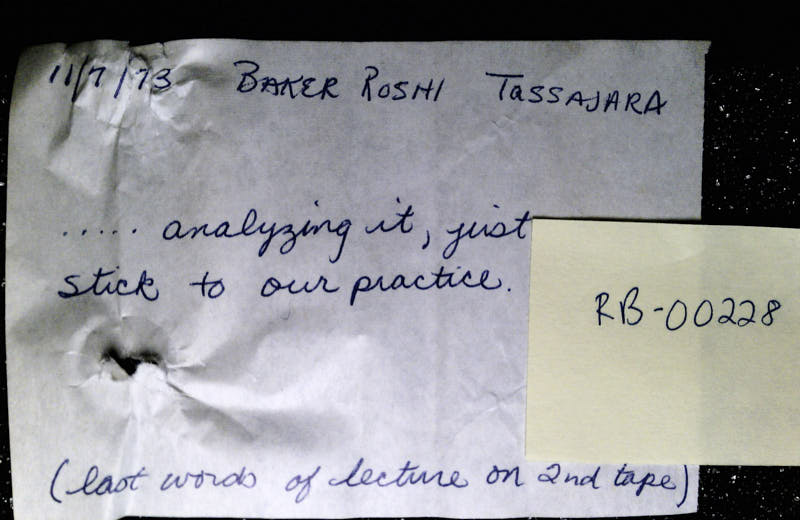 11/7/73 BAKER ROSHI TASSAJARA
..... analyzing it, just
stick to our practice.
RB-00228
(last words of lecture on 2nd tape)